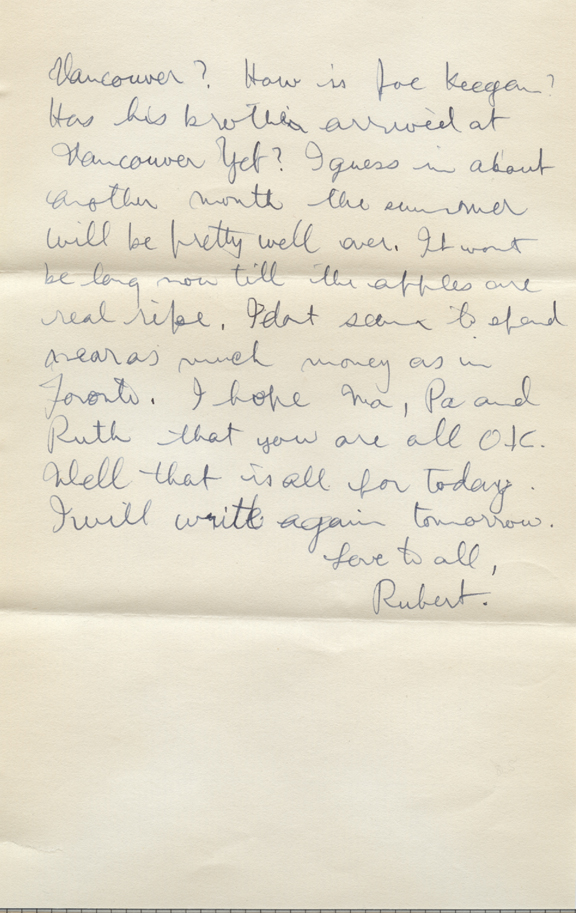 Vancouver? How is Joe Keegan?
Has his brother arrived at
Vancouver Yet? I guess in about
another month the summer
will be pretty well over. It wont
be long now till the apples are
real ripe. I dont seem to spend
near as much money as in
Toronto. I hope Ma, Pa and
Ruth that you are all O.K.
Well that is all for today.
I will write again tomorrow.
Love to all,
Rubert.